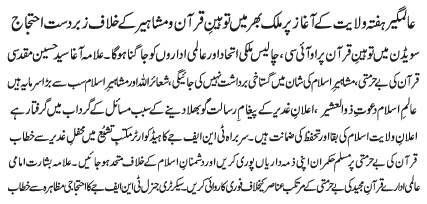 عالمگیر ہفتہ ولایت کے آغاز پر ملک بھر میں توہین قرآن و مشاہیر کے خلاف زبردست احتجاج
سویڈن میں توہین قرآن پر او آئی سی، چالیس ملکی اتحاد اور عالمی اداروں کو جاگنا ہوگا۔ علامہ آغا سید حسین مقدسی
قرآن کی بے حرمتی، مشاہیر اسلام کی شان میں گستاخی برداشت نہیں کی جائیگی، شعائر اللہ اور مشاہیر اسلام سب سے بڑا سرمایہ ہیں
عالم اسلام دعوت ذوالعشیر، اعلان غدیر کے پیغام رسالت کو بھلا دینے کے سبب مسائل کے گرداب میں گرفتار ہے
اعلان ولایت اسلام کی بقا اور تحفظ کی ضمانت ہیں۔ سربراہ ٹی این ایف جے کا ہیڈ کوارٹر مکتب تشیع میں محفل غدیر سے خطاب
قرآن کی بے حرمتی پر مسلم حکمران اپنی ذمہ داریاں پوری کریں اور دشمنان اسلام کے خلاف متحد ہو جائیں۔ علامہ بشارت امامی
عالمی ادارے قرآن مجید کی بے حرمتی کے مرتکب عناصر کیخلاف فوری کاروائی کریں۔ سیکرٹری جنرل ٹی این ایف جے کا احتجاجی مظاہرہ سے خطاب